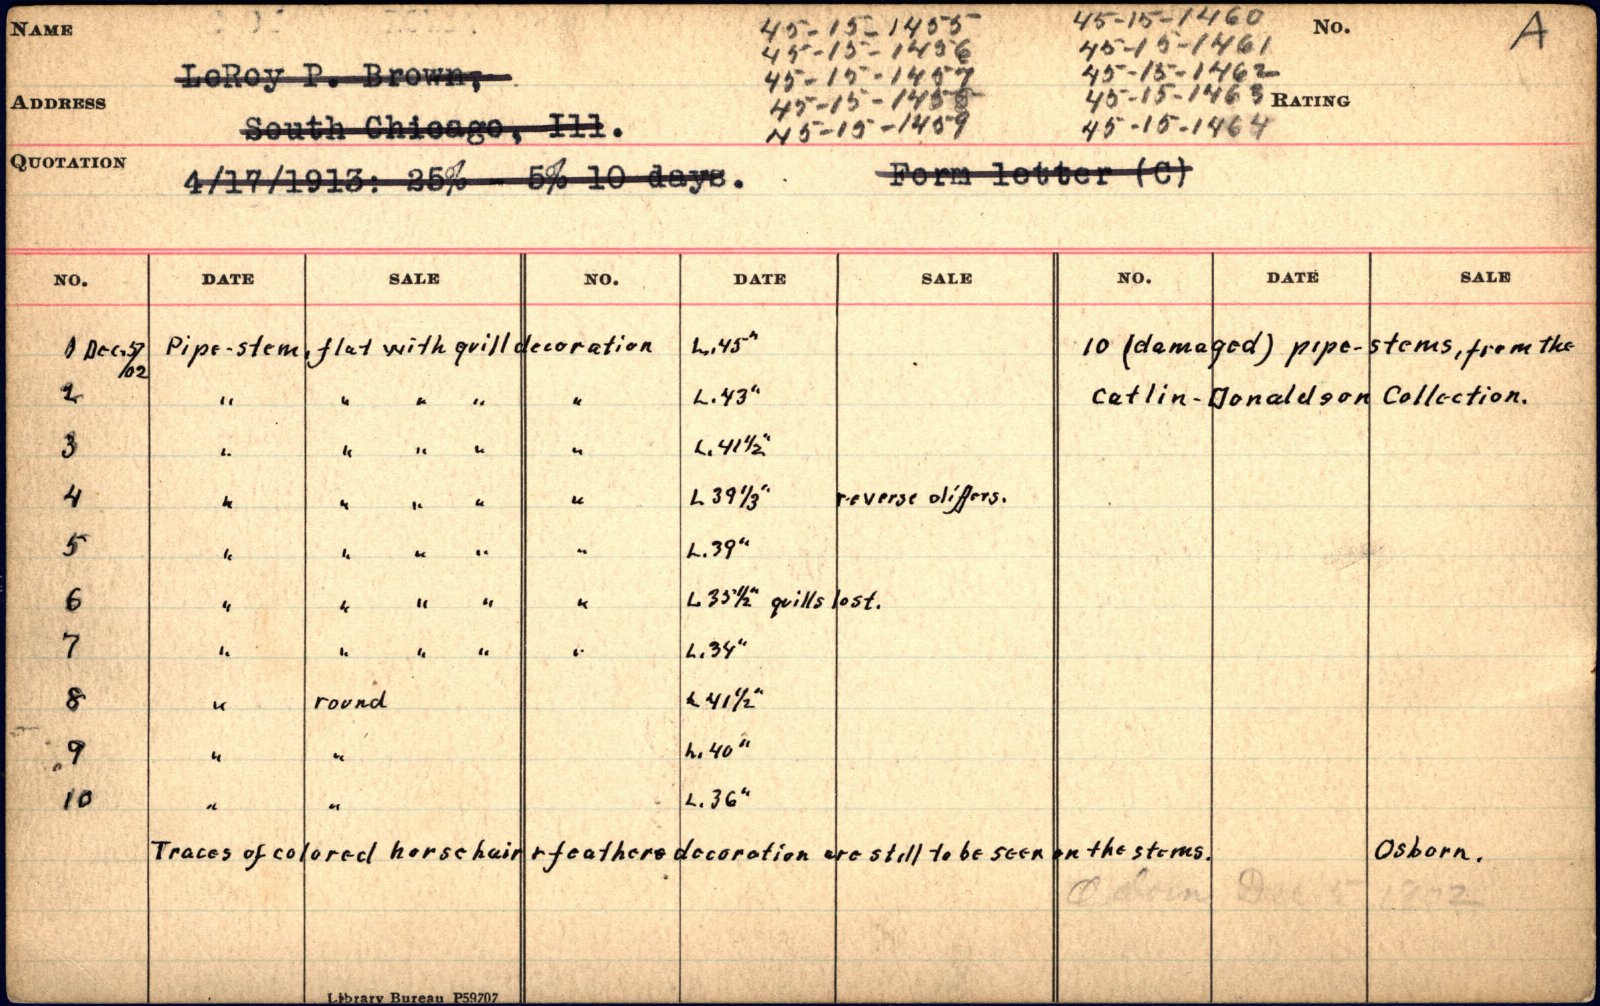 NAME 45-15-1455 45-15-1460 No. A
45-15-1456 45-15-1461
LeRoy P. Brown, 45-15-1457 45-15-1462
ADDRESS 45-15-1458 45-15-1463 RATING
South Chicago, Ill. 45-15-1459 45-15-1464
QUOTATION
4/17/1913: 25% - 5% 10 days. Form letter (C)
NO. DATE SALE NO. DATE SALE NO. DATE SALE
1 Dec. 5/02 Pipe-stem, flat with quill decoration L.45" 10 (damaged) pipe-stems, from the
2 " " " " " L.43" Catlin-Donaldson Collection.
3 " " " " " L.41 1/2"
4 " " " " " L 39 1/3" reverse differs.
5 " " " " " L.39"
6 " " " " " L.35 1/2" quills lost.
7 " " " " " L.34"
8 " round L 41 1/2"
9 " " L.40"
10 " " L.36"
Traces of colored horsehair r feathers decoration are still to be seen on the stems. Osborn.
Osborn Dec 5 1902
Library Bureau P59707